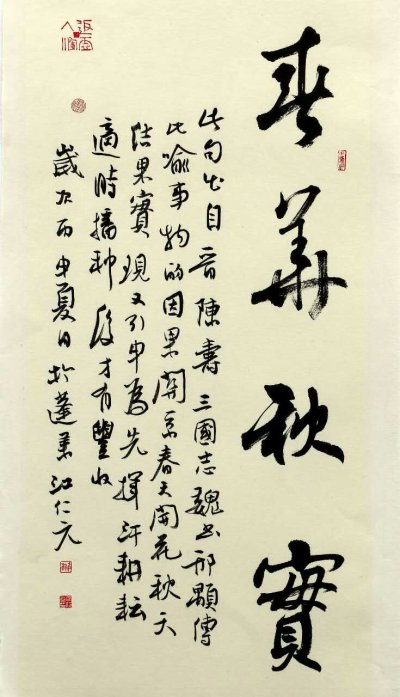 春華秋實
此句出自晋陳壽三國志魏書邢顒傳
比喻事物的因果關系春天開花秋天
結果實現又引申為先揮汗耕耘
適時播种後才有豐收
歲次丙申夏日於蓬萊江仁元